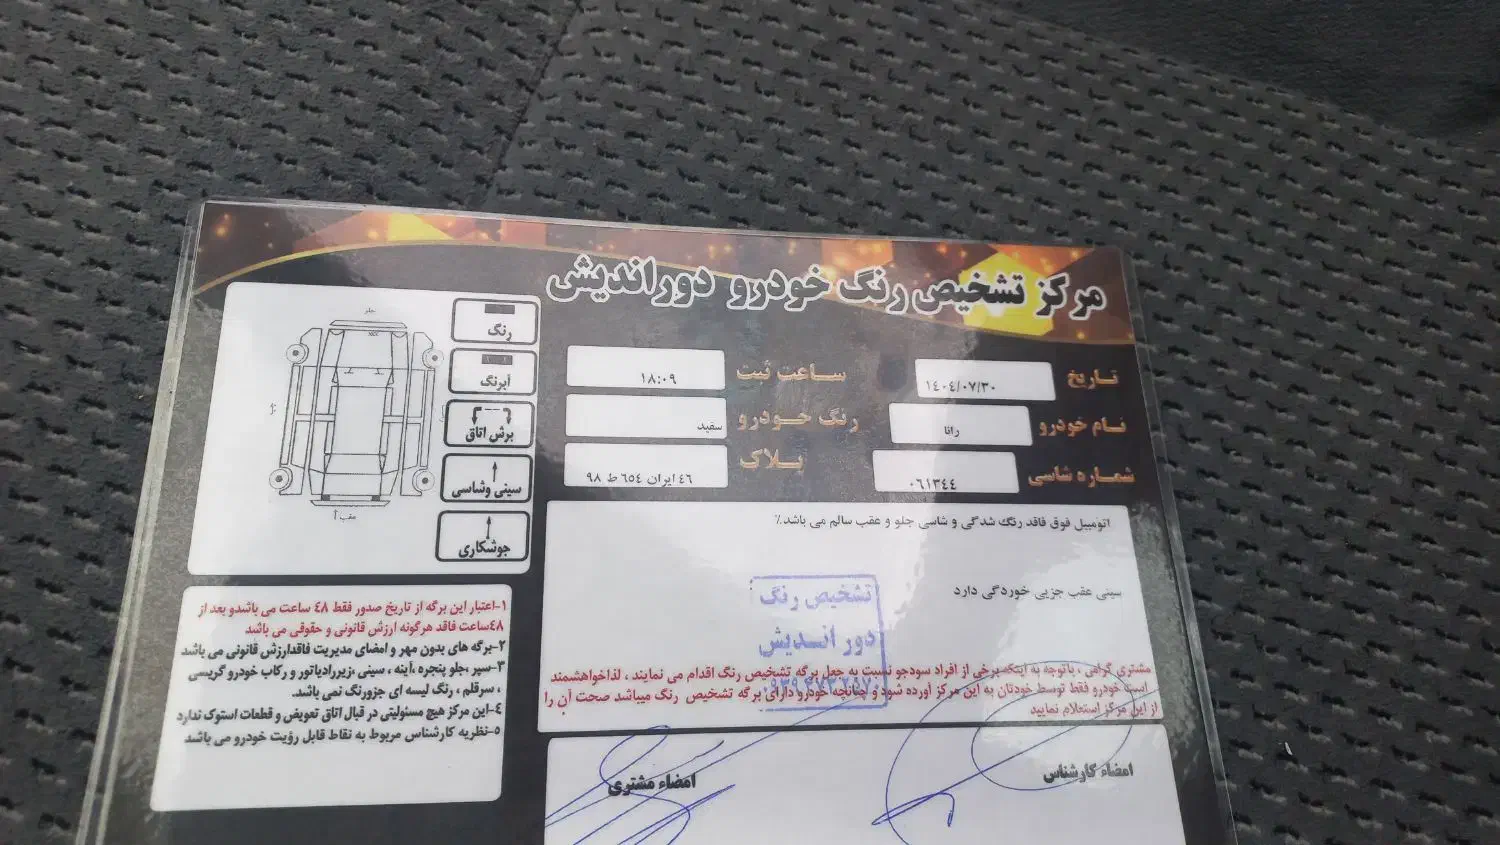 مرکز تشخیص رنگ خودرو دوراندیش
تاریخ ۱۴۰۴/۰۷/۳۰
ساعت ثبت ۱۸:۰۹
نام خودرو رانا
رنگ خودرو سفید
شماره شاسی ۰۶۱۳۴۴
پلاک ٤٦ ایران ٦٥٤ ط ۹۸
جلو
عقب
رنگ
آبرنگ
برش اتاق
سینی وشاسی
جوشکاری
اتومبیل فوق فاقد رنگ شدگی و شاسی جلو و عقب سالم می باشد٪
سینی عقب جزیی خوردگی دارد
تشخیص رنگ
دور اندیش
مشتری گرامی ، باتوجه به اینکه برخی از افراد سودجو نسبت به جعل برگه تشخیص رنگ اقدام می نمایند ، لذاخواهشمند
است خودرو فقط توسط خودتان به این مرکز آورده شود و چنانچه خودرو دارای برگه تشخیص رنگ میباشد صحت آن را
از این مرکز استعلام نمایید
۱-اعتبار این برگه از تاریخ صدور فقط ٤٨ ساعت می باشدو بعد از
٤٨ساعت فاقد هرگونه ارزش قانونی و حقوقی می باشد
۲-برگه های بدون مهر و امضای مدیریت فاقدارزش قانونی می باشد
۳-سپر ،جلو پنجره ،آینه ، سینی ،زیررادیاتور و رکاب خودرو گریسی
، سرقلم ، رنگ لیسه ای جزورنگ نمی باشد.
٤-این مرکز هیچ مسئولیتی در قبال اتاق تعویض و قطعات استوک ندارد
٥-نظریه کارشناس مربوط به نقاط قابل رؤیت خودرو می باشد
امضاء کارشناس
امضاء مشتری